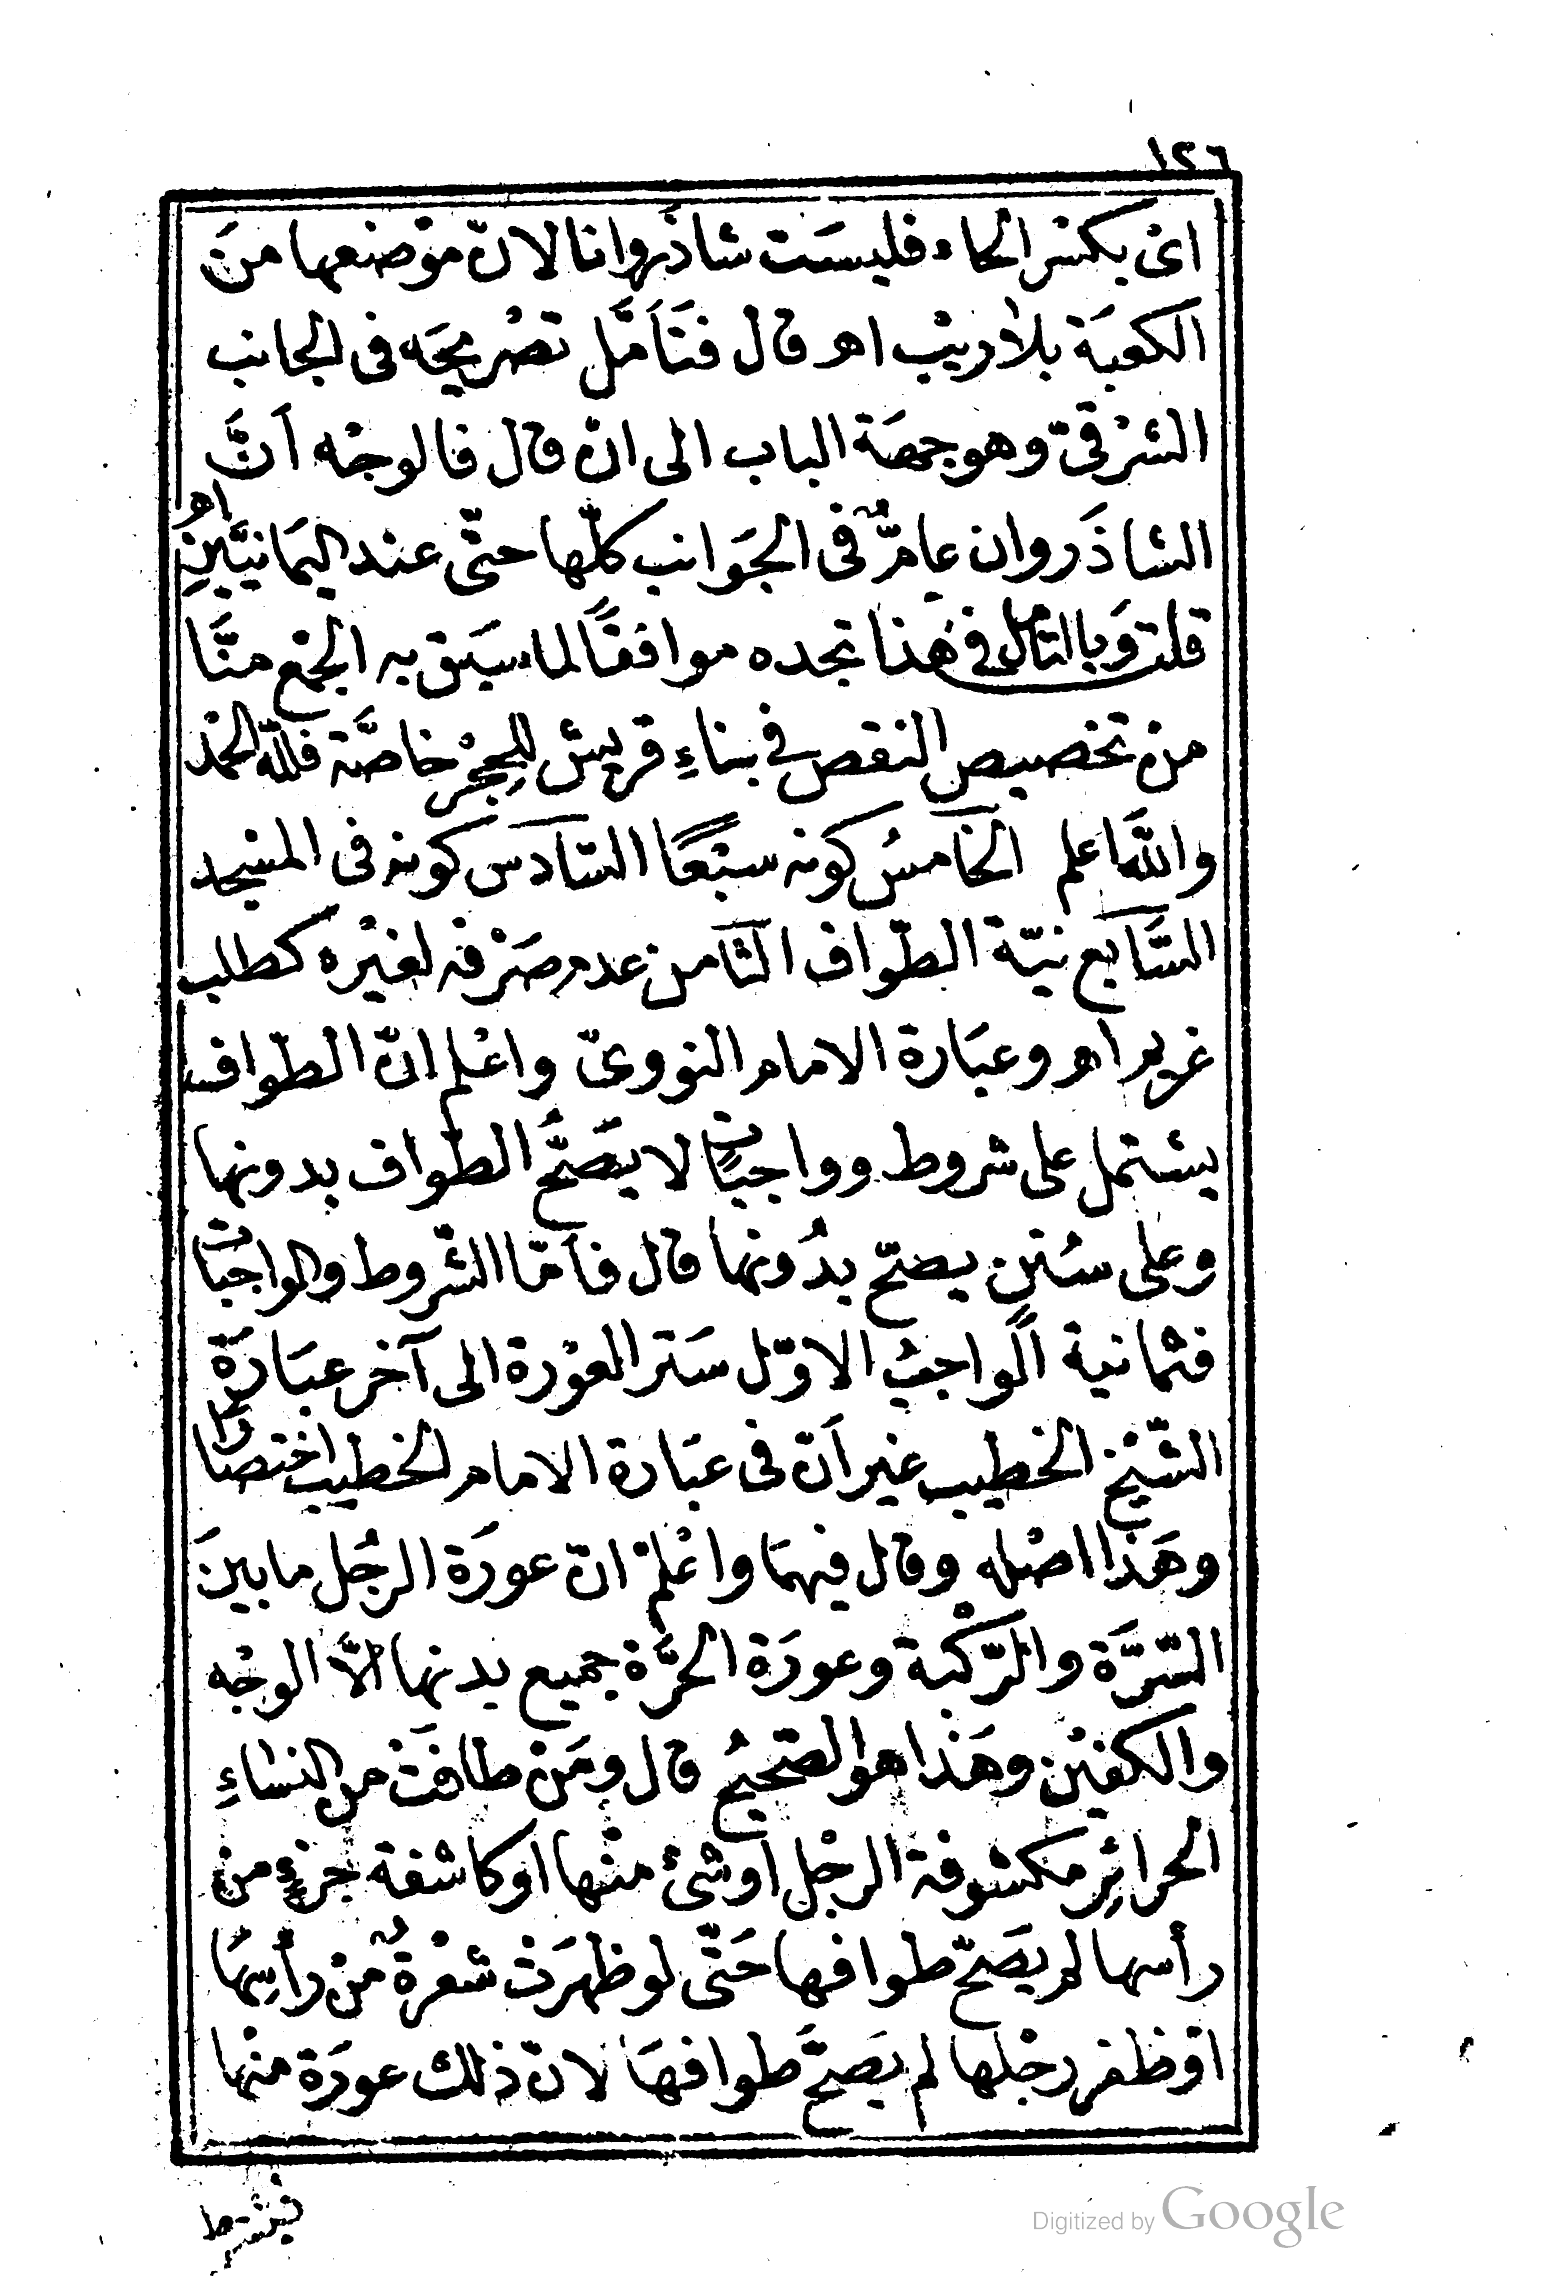 ١٢٦
اى بكسر الحاء فليسَت شاذَروانا لانّ موْضعها منَ
الكعبَة بلا ريْب اهـ قال فتَأمَّل تصْريحَه فى الجانب
الشرْقىّ وهو جهَة الباب الى انّ قال فالوجْه اَنَّ
الشاذَروان عامٌّ فى الجَوانب كلّها حتّى عند اليمَانيَّينِ اهـ
قلت وَبالتأمّل فى هٰذا تجده موافقًا لما سيَق به الجمْع منَّا
من تخصيص النقص فى بناءِ قريش للِحِجْر خاصَّة فللّه الحمْد
واللهَ اعلم الخامسُ كونه سبْعًا السّادَس كونه فى المسْجد
السَّابع نيّة الطّواف الثّامن عدم صَرْفه لغيْره كطلب
غريم اهـ وعبَارة الامام النووىّ واعْلم انّ الطّواف
يشتمل على شروط وواجبَات لا يَصَحّ الطّواف بدونها
وعلى سُننٍ يصحّ بدُونها قال فاَمّا الشّروط والواجبَات
فثمانية الواجبُ الاوّل سَتر العوْرة الى آخر عبَارَة
الشّيْخ الخطيب غير اَنّ فى عبَارة الامام الخطيب اختصارًا
وهَذا اصْله وقال فيهمَا واعْلمْ انّ عورَة الرجُل ما بينَ
السّرَّة والرّكْبة وعورَة الحرَّة جميع بدنها الاَّ الوجْه
والكفيْن وهَذا هو الصّحيحُ قال ومَن طافَتْ من النسَاءِ
الحرائِر مكشوفة الرجْل او شئ منْها او كاشفة جزءٍ من
رأسها لم يصَحّ طوافها حَتّى لو ظهرَتْ شعْرةٌ منْ رأسِهَا
اوْ ظفر رجْلها لم يَصَحّ طوافهَا لانّ ذلك عورَة منْها
فيشترط
Digitized by Google